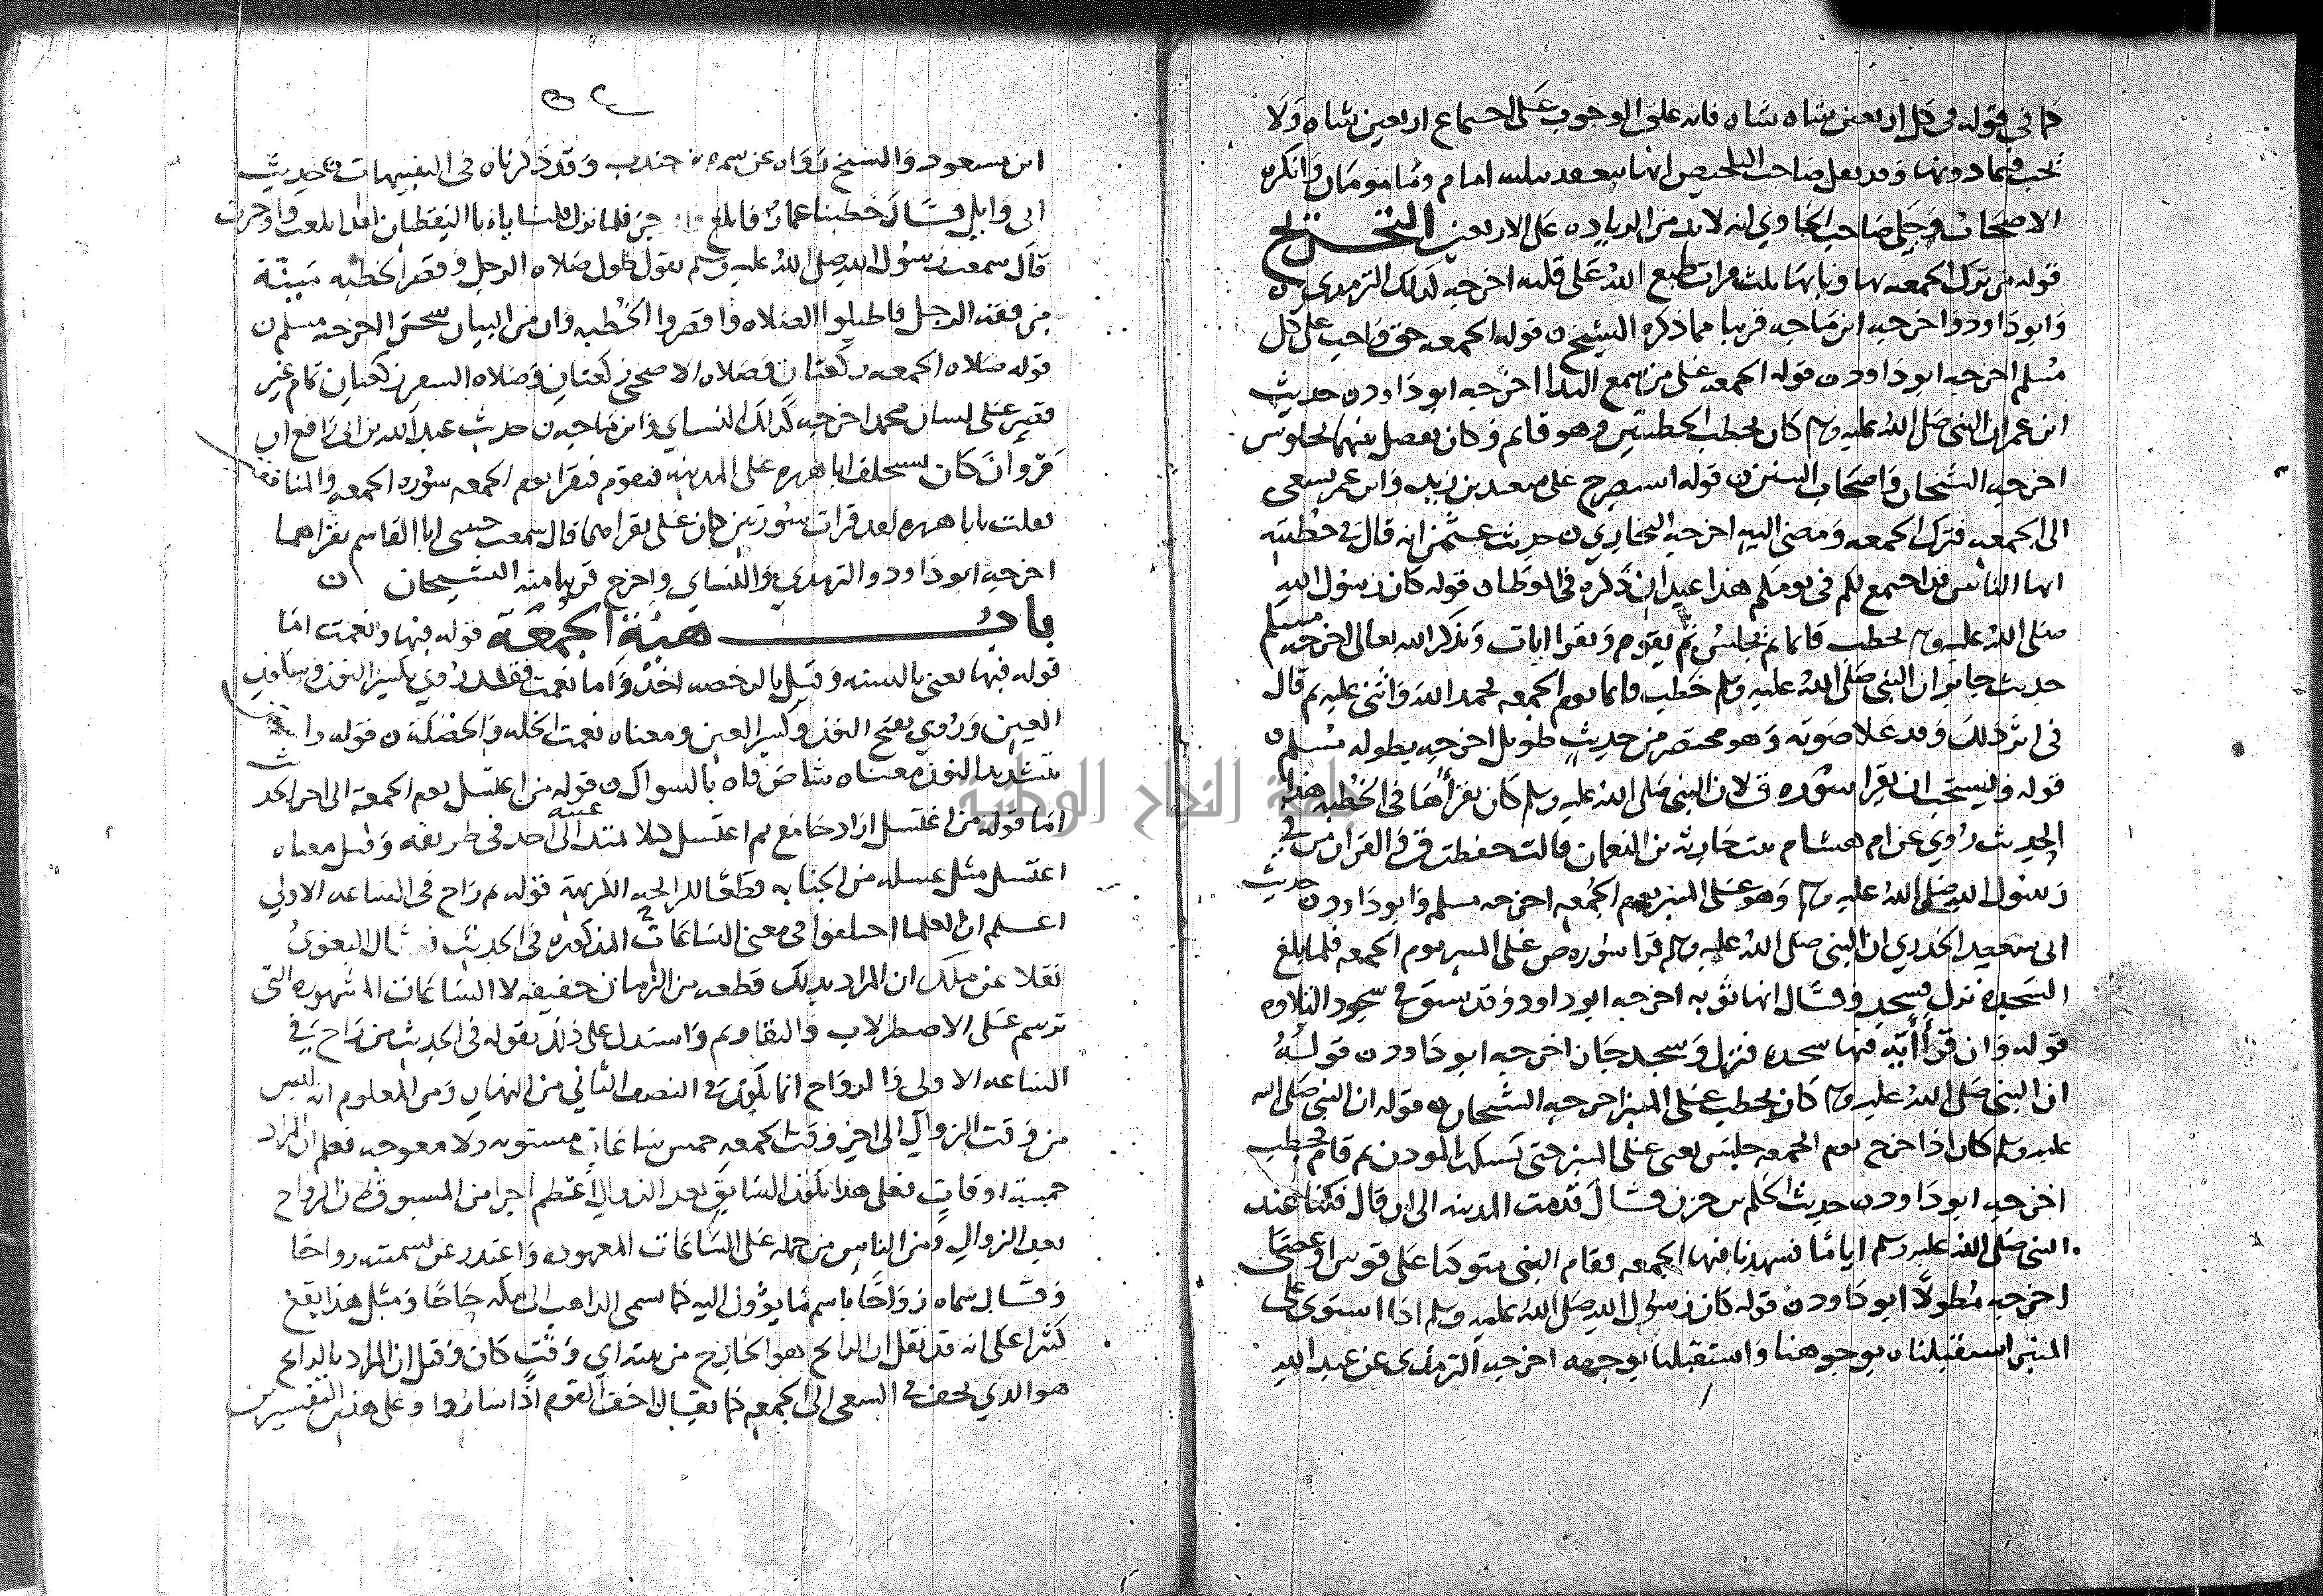 كما في قوله في كل اربعين شاه شاه فانه علق الوجوب على اجتماع اربعين شاه ولا
تجب فيما دونها وقد نقل صاحب التلخيص انها تنعقد بثلثه امام ومامومان وانكره
الاصحاب وحكي صاحب الحاوي انه لابد من الزياده على الاربعين التخريج
قوله من ترك الجمعه تهاونا بها ثلث مرات طبع الله على قلبه اخرجه كذلك الترمدي
وابو داود واخرجه ابن ماجه قريبا مما ذكره الشيخ ن قوله الجمعه حق واجب على كل
مسلم اخرجه ابو داود ن قوله الجمعه على من سمع الندا اخرجه ابو داود ن حديث
ابن عمر ان النبي صلى الله عليه وسلم كان يخطب الخطبتين وهو قايم وكان يفصل بينهما بجلوس
اخرجه الشيخان واصحاب السنن ن قوله استصرخ على سعيد بن زيد وابن عمر يسعى
الى الجمعه فترك الجمعه ومضى اليه اخرجه البخاري ن حديث عثمن انه قال في خطبته
ايها الناس قد اجتمع لكم في يومكم هذا عيدان ذكره في الموطا ن قوله كان رسول الله
صلى الله عليه وسلم يخطب قايما ثم يجلس ثم يقوم ويقرا ايات ويذكر الله تعالى اخرجه مسلم
حديث جابر ان النبي صلى الله عليه وسلم خطب قايما يوم الجمعه فحمد الله واثنى عليه ثم قال
في اثر ذلك وقد علا صوته وهو مختصر من حديث طويل اخرجه بطوله مسلم ن
قوله ويستحب ان يقرا سوره ق لان النبي صلى الله عليه وسلم كان يقرأها في الخطبه هذا
الحديث روي عن ام هشام بنت حارثه بن النعمان قالت حفظت ق والقران من في
رسول الله صلى الله عليه وسلم وهو على المنبر يوم الجمعه اخرجه مسلم وابو داود ن حديث
ابي سعيد الخدري ان النبي صلى الله عليه وسلم قرا سوره ص على المنبر يوم الجمعه فلما بلغ
السجده نزل فسجد وقال انها توبه اخرجه ابو داود وقد سبق في سجود التلاوه
قوله وان قرأ آيه فيها سجده فنزل وسجد جاز اخرجه ابو داود ن قوله
ان النبي صلى الله عليه وسلم كان يخطب على المنبر اخرجه الشيخان ن قوله ان النبي صلى الله
عليه وسلم كان اذا خرج يوم الجمعه جلس يعني على المنبر حتى يسكت المودن ثم قام فخطب
اخرجه ابو داود ن حديث الحكم بن حزن قال قدمت المدينه الى ان قال فكنا عند
النبي صلى الله عليه وسلم اياما فشهدنا فيها الجمعه فقام النبي متوكيا على قوس او عصا
اخرجه مطولا ابو داود ن قوله كان رسول الله صلى الله عليه وسلم اذا استوى على
المنبر استقبلناه بوجوهنا واستقبلنا بوجهه اخرجه الترمدي عن عبد الله
٥٤
ابن مسعود والشيخ رواه عن سمره بن جندب وقد ذكرناه في التنبيهات ن حديث
ابي وايل قال خطبنا عمار فابلغ واوجز فلما نزل قلنا يا ابا اليقظان لقد ابلغت واوجزت
قال سمعت رسول الله صلى الله عليه وسلم يقول طول صلاه الرجل وقصر الخطبه مينة
من فقه الرجل فاطيلوا الصلاه واقصروا الخطبه وان من البيان سحرا اخرجه مسلم ن
قوله صلاه الجمعه ركعتان وصلاه الاضحى ركعتان وصلاه السفر ركعتان تمام غير
قصر على لسان محمد اخرجه كذلك النساي وابن ماجه ن حديث عبد الله بن ابي رافع ان
مروان كان يستخلف ابا هريره على المدينه فيقوم فيقرا يوم الجمعه سوره الجمعه والمنافقين
فقلت يابا هريره لقد قرات سورتين كان على يقراهما قال سمعت حبي ابا القاسم يقراهما
اخرجه ابو داود والترمدي والنساي واخرج قريبا منه الشيخان ن
باب هيئة الجمعة قوله فبها ونعمت اما
قوله فبها يعني بالسنه وقيل بالرخصه اخذ واما نعمت فقد روي بكسر النون وسكون
العين وروي بفتح النون وكسر العين ومعناه نعمت الخله والخصلة ن قوله واستن
بتشديد النون معناه شاص فاه بالسواك ن قوله من اغتسل يوم الجمعة الى اخر الحد
اما قوله من اغتسل اراد جامع ثم اغتسل ليلا تمتد عينه الى احد في طريقه وقيل معناه
اغتسل مثل غسله من الجنابه قطعا للرايحه الكريهة قوله ثم راح في الساعه الاولى
اعلم ان العلما اختلفوا في معنى الساعات المذكوره في الحديث قال البغوي
نقلا عن ملك ان المراد بذلك قطعه من الزمان خفيفه لا الساعات المشهوره التي
ترسم على الاصطرلاب والتقاويم واستدل على ذلك بقوله في الحديث من راح في
الساعه الاولى والرواح انما يكون في النصف الثاني من النهار ومن المعلوم انه ليس
من وقت الزوال الى اخر وقت الجمعه خمس ساعات مستويه ولا معوجه فعلم ان المراد
خمسة اوقات فعلى هذا يكون السابق بعد الزوال اعظم اجرا من المسبوق لان الرواح
بعد الزوال ومن الناس من حمله على الساعات المعهوده واعتذر عن تسميته رواحا
وقال سماه رواحا باسم ما يوول اليه كما يسمى الذاهب الى مكه حاجا ومثل هذا يقع
كثيرا على انه قد نقل ان الرايح هو الخارج من بيته اي وقت كان وقيل ان المراد بالرايح
هو الذي يخف في السعي الى الجمعه كما يقال اخف القوم اذا ساروا وعلى هذين التفسيرين